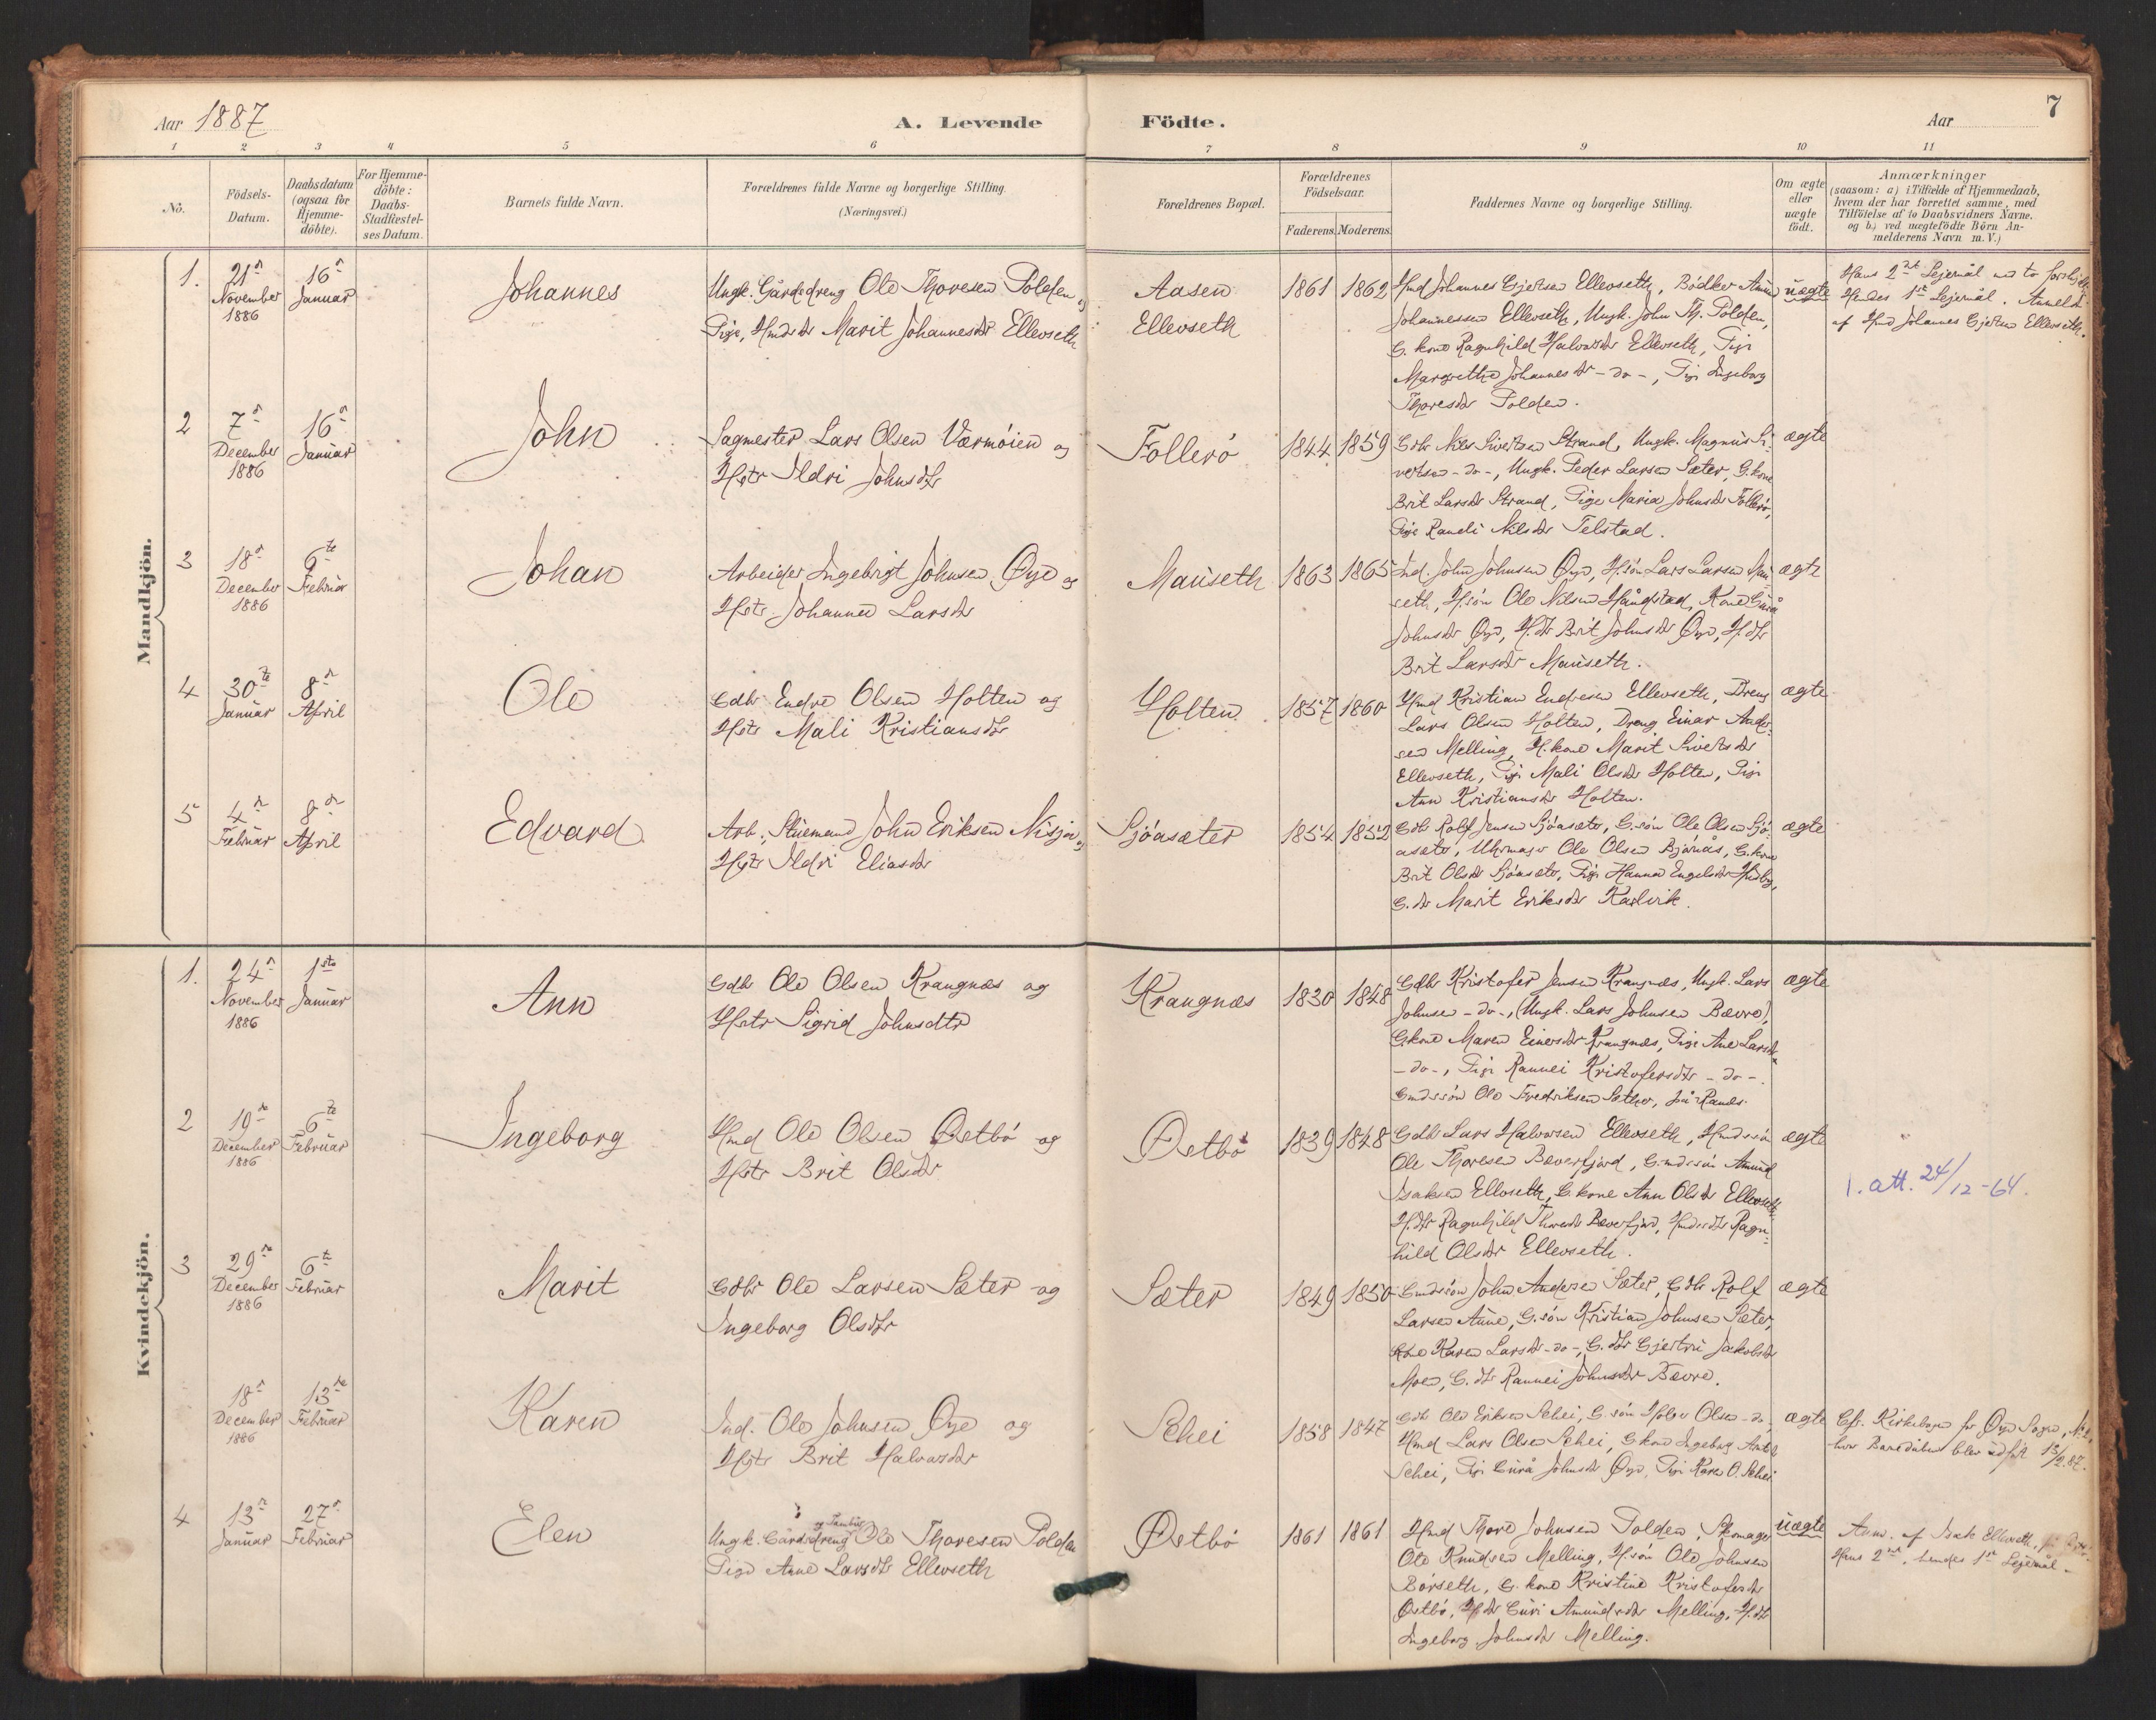 Aar 1887
A. Levende
Födte.
Aar
7
1 2 3 4 5 6 7 8 9 10 11
No.
Födsels-
Datum.
Daabsdatum
(ogsaa for
Hjemme-
döbte).
For Hjemme-
döbte:
Daabs-
Stadfæstel-
ses Datum.
Barnets fulde Navn.
Forældrenes fulde Navne og borgerlige Stilling.
(Næringsvei.)
Forældrenes Bopæl.
Forældrenes
Födselsaar.
Faderens. Moderens.
Faddernes Navne og borgerlige Stilling.
Om ægte
eller
uægte
födt.
Anmærkninger
(saasom: a) i Tilfælde af Hjemmedaab,
hvem der har forrettet samme, med
Tilföielse af to Daabsvidners Navne.
og b.) ved uægtefödte Börn An-
melderens Navn m.V.)
Mandkjön.
1.
21de
November
1886
16de
Januar
Johannes
Ungk. Gårdsdreng Ole Thoresen Polden og
Pige, Hmdsdtr Marit Johannesdtr Ellevseth
Aasen
Ellevseth
1861
1862
Hmd Johannes Gjertsen Ellevseth, Bødker Amund
Johannessen Ellevseth, Ungk. John Th. Polden,
G. kone Ragnhild Halvorsdtr Ellevseth, Pige
Margrethe Johannesdtr -do-, Pige Ingeborg
Thoresdtr Polden.
uægte
Hans 2det Lejermål med to
Hendes 1ste Lejermål. Anmeldt
af Hmd Johannes Gjertsen Ellevseth.
2
7de
December
1886
16de
Januar
John
Sagmester Lars Olsen Værmøien og
Hstr Ildri Johnsdtr
Follerö
1844
1859
Gdbr Nils Sivertsen Strand, Ungk. Magnus Si-
vertsen -do-, Ungk. Peder Larsen Sæter, G. kone
Brit Larsdtr Strand, Pige Maria Johnsdtr Follerö,
Pige Randi Nilsdtr Telstad.
ægte
3
18de
December
1886
6te
Februar
Johan
Arbeider Ingebrigt Johnsen Øye og
Hstr. Johanne Larsdtr
Mauseth
1863
1865
Ind. John Johnsen Øye, H.søn Lars Larsen Mau-
seth, H.søn Ole Nilsen Håndstad, Kone Gurå
Johnsdtr Øye, H.dtr Brit Johnsdtr Øye, H.dtr
Brit Larsdtr Mauseth.
ægte
4
30te
Januar
8de
April
Ole
Gdbr Endre Olsen Holten og
Hstr Mali Kristiansdtr
Holten
1857
1860
Hmd Kristian Endresen Ellevseth, Dreng
Lars Olsen Holten, Dreng Einar Ander-
sen Melling, H. kone Marit Sivertsdtr
Ellevseth, Pige Mali Olsdtr Holten, Pige
Ann Kristiansdtr Holten.
ægte
5
4de
Februar
8de
April
Edvard
Arb., Stuemand John Eriksen Nisja og
Hstr Ildri Eliasdtr
Sjöasæter
1854
1852
Gdbr Rolf Jensen Sjöasæter, G.søn Ole Olsen Sjö-
asæter, Uhrmager Ole Olsen Bjørnås, G. kone
Brit Olsdtr Sjöasæter, Pige Hanna Engelsdtr Husby,
G. dtr Marit Eriksdtr Karlvik.
ægte
Kvindekjön.
1.
24de
November
1886
1ste
Januar
Ann
Gdbr Ole Olsen Krangnæs og
Hstr Sigrid Johnsdtr
Krangnæs
1830
1848
Gdbr Kristofer Jensen Krangnæs, Ungk. Lars
Johnsen -do-, (Ungk. Lars Johnsen Bævre),
G.kone Maren Einersdtr Krangnæs, Pige Ane Larsdtr
-do-, Pige Rannei Kristofersdtr -do-.
Gmdssøn Ole Fredriksen Sæther, på Ranes.
ægte
2
19de
December
1886
6te
Februar
Ingeborg
Hmd Ole Olsen Østbö og
Hstr Brit Olsdtr
Østbö
1839
1848
Gdbr Lars Halvorsen Ellevseth, Hmdssøn
Ole Thoresen Bæverfjord, Gmdssøn Amund
Isaksen Ellevseth, G. kone Ann Olsdtr Ellevseth,
H.dtr Ragnhild Thoresdtr Bæverfjord, Hmdsdtr Ragn-
hild Olsdtr Ellevseth.
ægte
1. att. 24/12-64.
3
29de
December
1886
6te
Februar
Marit
Gdbr Ole Larsen Sæter og
Ingeborg Olsdtr
Sæter
1849
1850
Gmdssøn John Andersen Sæter, Gdbr Rolf
Larsen Aune, G.søn Kristian Johnsen Sæter,
Kone Karen Larsdtr -do-, G. dtr Gjertru Jakobsdtr
Moen, G. dtr Rannei Johnsdtr Bævre.
ægte
18de
December
1886
13de
Februar
Karen
Ind. Ole Johnsen Øye og
Hstr Brit Halvorsdtr
Schei
1858
1847
Gdbr Ole Eriksen Schei, G.søn Halvor Olsen -do-,
Hmd Lars Olsen Schei, G kone Ingeborg
Schei, Pige Gurå Johnsdtr Øye, Pige Karen O. Schei
ægte
Cfr. Kirkebogen for Øye Sogn, No 2,
hvor Barnedåben blev udført 13/2 87.
4
13de
Januar
27de
Februar
Elen
og Tambur
Ungk. Gårdsdreng Ole Thoresen Polden
Pige Anne Larsdtr Ellevseth
Østbö
1861
1861
Hmd Thore Johnsen Polden, Skomager
Ole Knudsen Melling, H.søn Ole Johnsen
Börseth, G. kone Kristine Kristofersdtr
Østbö, H dtr Guri Amundsdtr Melling, H.dtr
Ingeborg Johnsdtr Melling.
uægte
Anm. af Isak Ellevseth,
Hans 2det, hendes 1ste Lejermål.